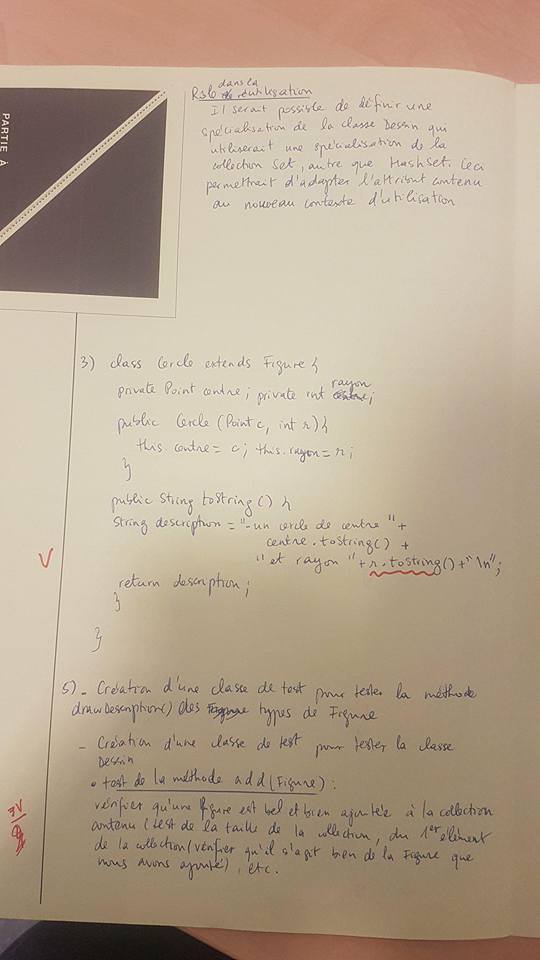 PARTIE À
dans la
Rôle de réutilisation
Il serait possible de définir une
spécialisation de la classe Dessin qui
utiliserait une spécialisation de la
collection Set, autre que HashSet. Ceci
permettrait d'adapter l'attribut contenu
au nouveau contexte d'utilisation
3) class Cercle extends Figure {
rayon
private Point centre; private int centre;
public Cercle (Point c, int r) {
this.centre = c; this.rayon = r;
}
public String toString() {
String description = "-un cercle de centre " +
centre.toString() +
V
" et rayon " + r.toString() + " \n";
return description;
}
}
5) - Création d'une classe de test pour tester la méthode
drawDescription() des Figure types de Figure
- Création d'une classe de test pour tester la classe
Dessin
• test de la méthode add (Figure) :
vérifier qu'une figure est bel et bien ajoutée à la collection
contenu (test de la taille de la collection, du 1er élément
de la collection (vérifier qu'il s'agit bien de la Figure que
nous avons ajouté), etc.
3V